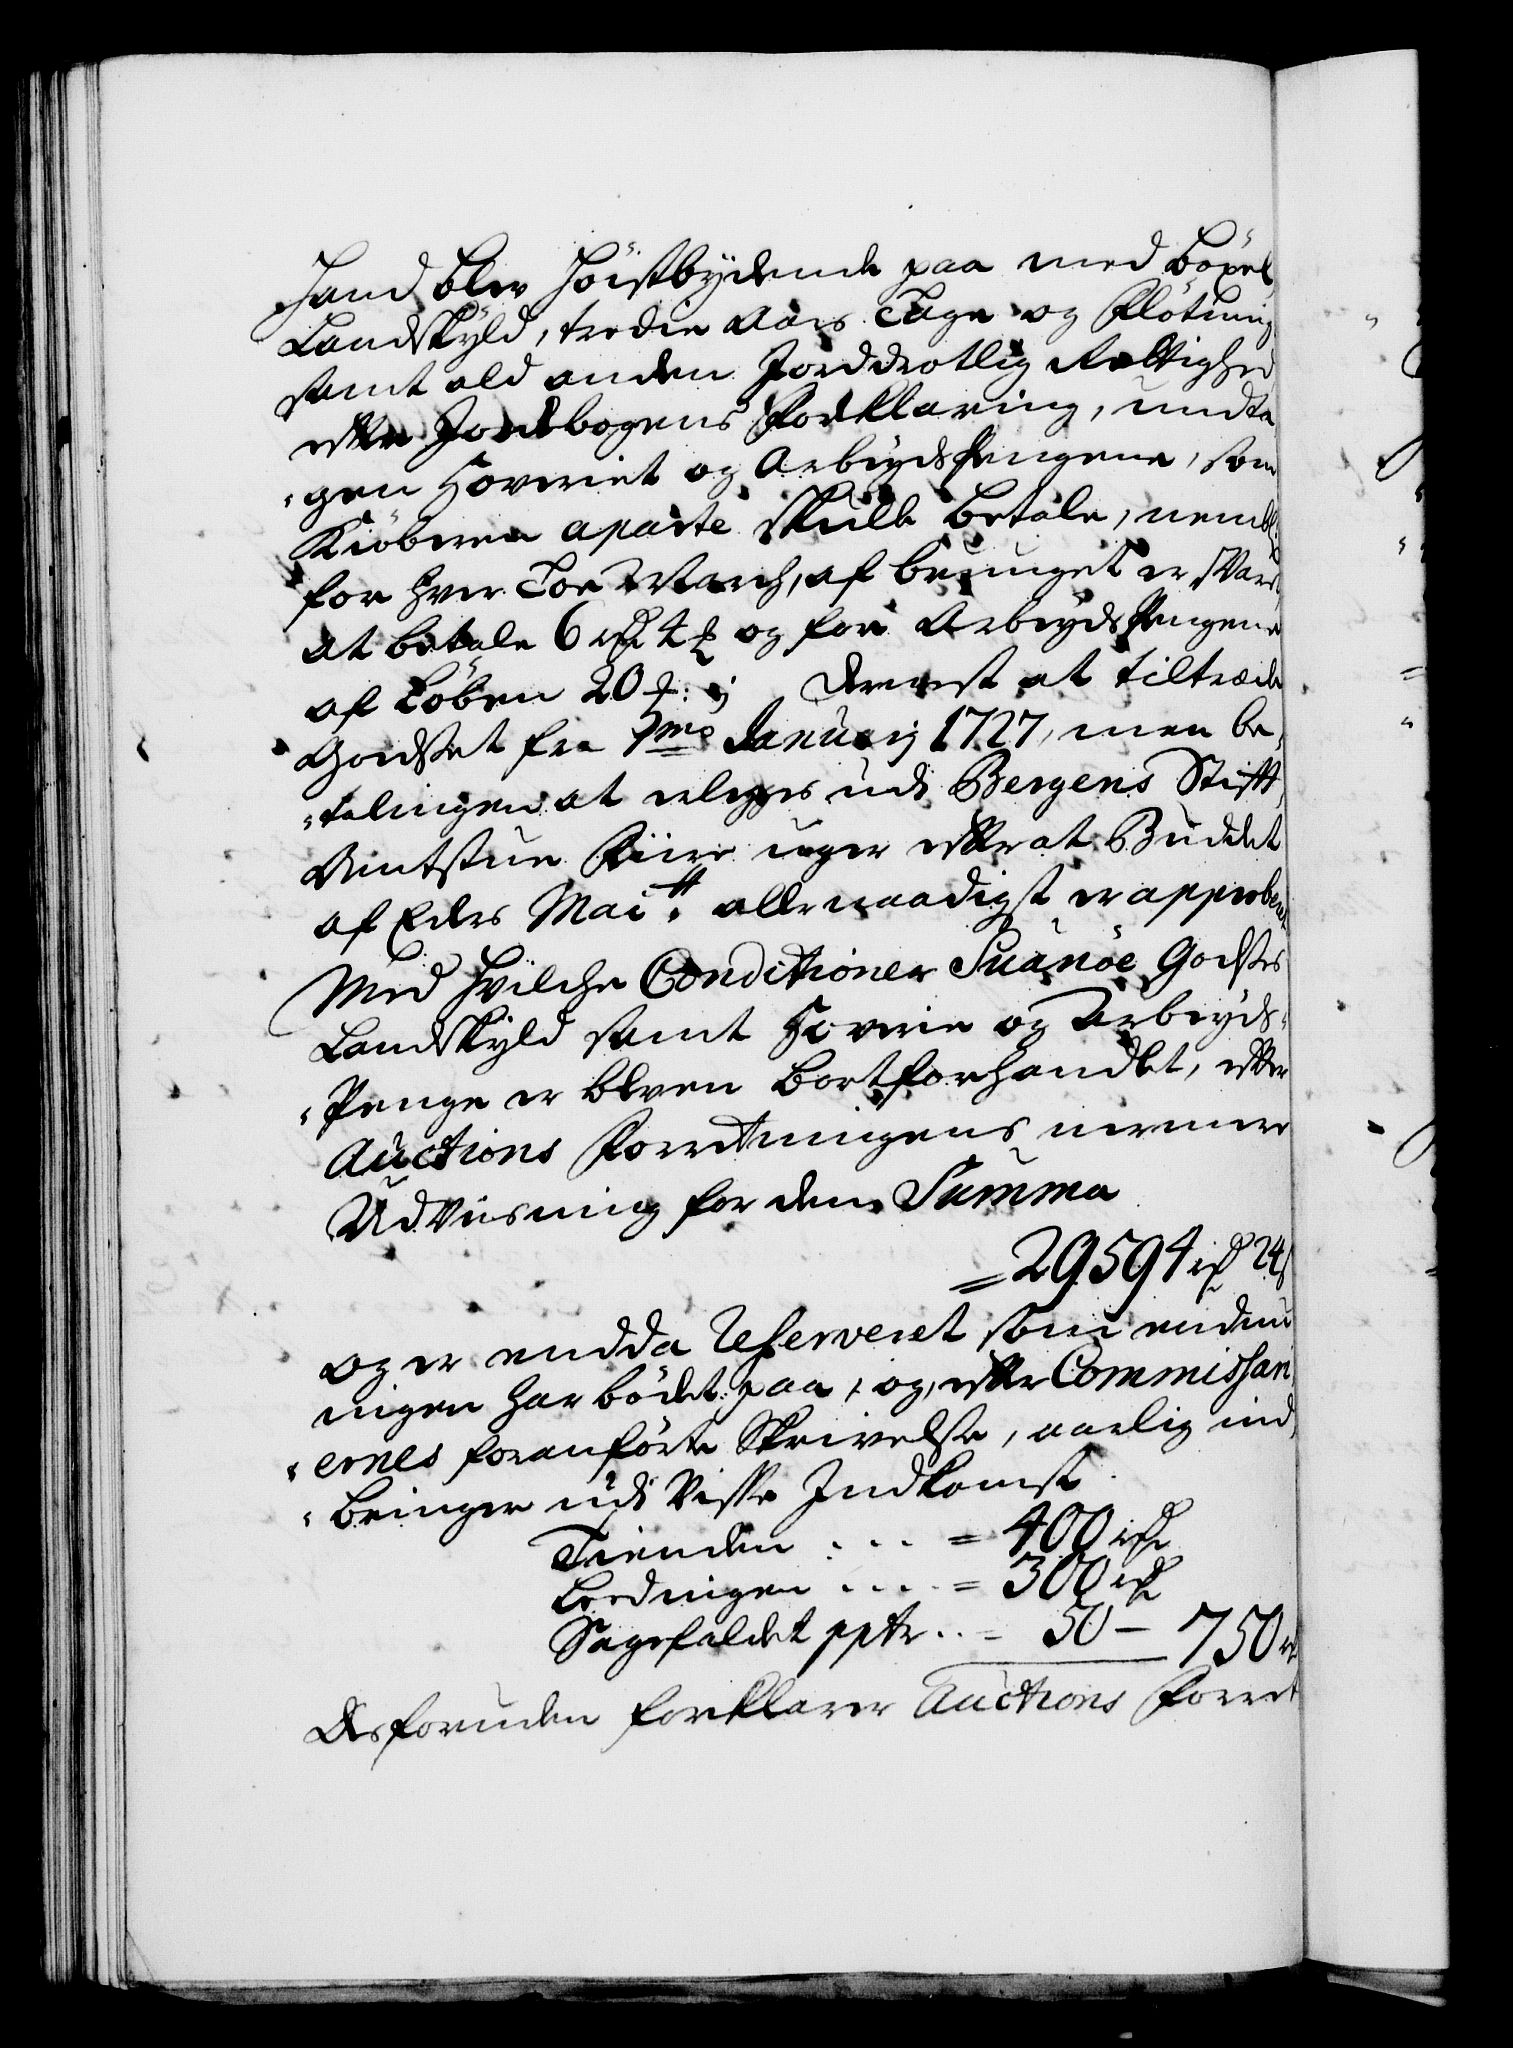 hand blev høistbydende paa med Boxel
Landskyld, tredie Aars Tage og Fløtning
samt ald anden Jorddrotlig Rettighed
efter Jordebogens Forklaring, undta
"gen Hoveriet og Arbeyds Pengene, som
Kiøberen aparte skulle betale, nembl:
for hver Toe March, af
at betale 6 rdr 4 og for Arbeyds Pengene
af Løben 20 dernest at tiltræde
Godset fra 1mo Januarij 1727, men be,
"talingen at erlegges udi Bergens Stift
Amtstue Fiire uger efter at Buddet
af Eders Maitt. allernaadigst er approbert
Med hvilche Conditioner Suanøe Godses
Landskyld samt Hoverie og Arbeyds-
"Penge er bleven bortforhandlet, efter
Auctions Forretningens nermere
Udviisning for den Summa
= 29594 rdr 24 s
og er endda reserveret som endnu
ingen har bødet paa, og, efter Commissari
"ernes foranførte Skrivelse, aarlig ind,
"bringer udi visse Indkomst
Tienden . . . = 400 rdr
Leedingen . . . . = 300 rdr
Sagefaldet pptr . . = 50 — 750 r
Desforuden forklarer Auctions Forret